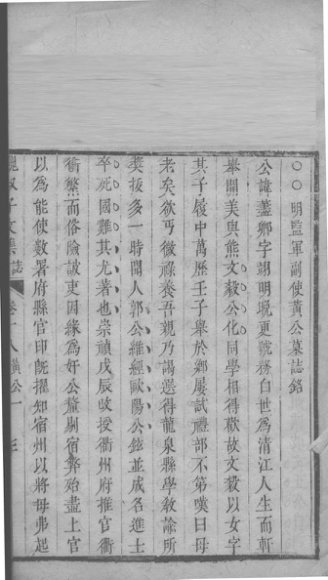 ○○明監軍副使黃公墓誌銘
公諱蓋卿字翊明晚更號

白世為清江人生而軒
舉開美與熊文毅公化同學相得歡故文毅以女字
其子履中萬曆壬子舉於鄉屢試禮部不第嘆曰母
老矣欲丐微祿養吾親乃謁選得龍泉縣學教諭所
獎拔多一時聞人郭公維經歐陽公鉉並成名進士
卒死國難其尤著也崇禎戊辰改授衢州府推官衢
衝繁而俗險詖吏因緣為奸公釐剔宿弊殆盡上官
以為能使數署府縣官印旣擢知宿州以將母弗起
魏叔子文集 誌 卷 八 黃公一